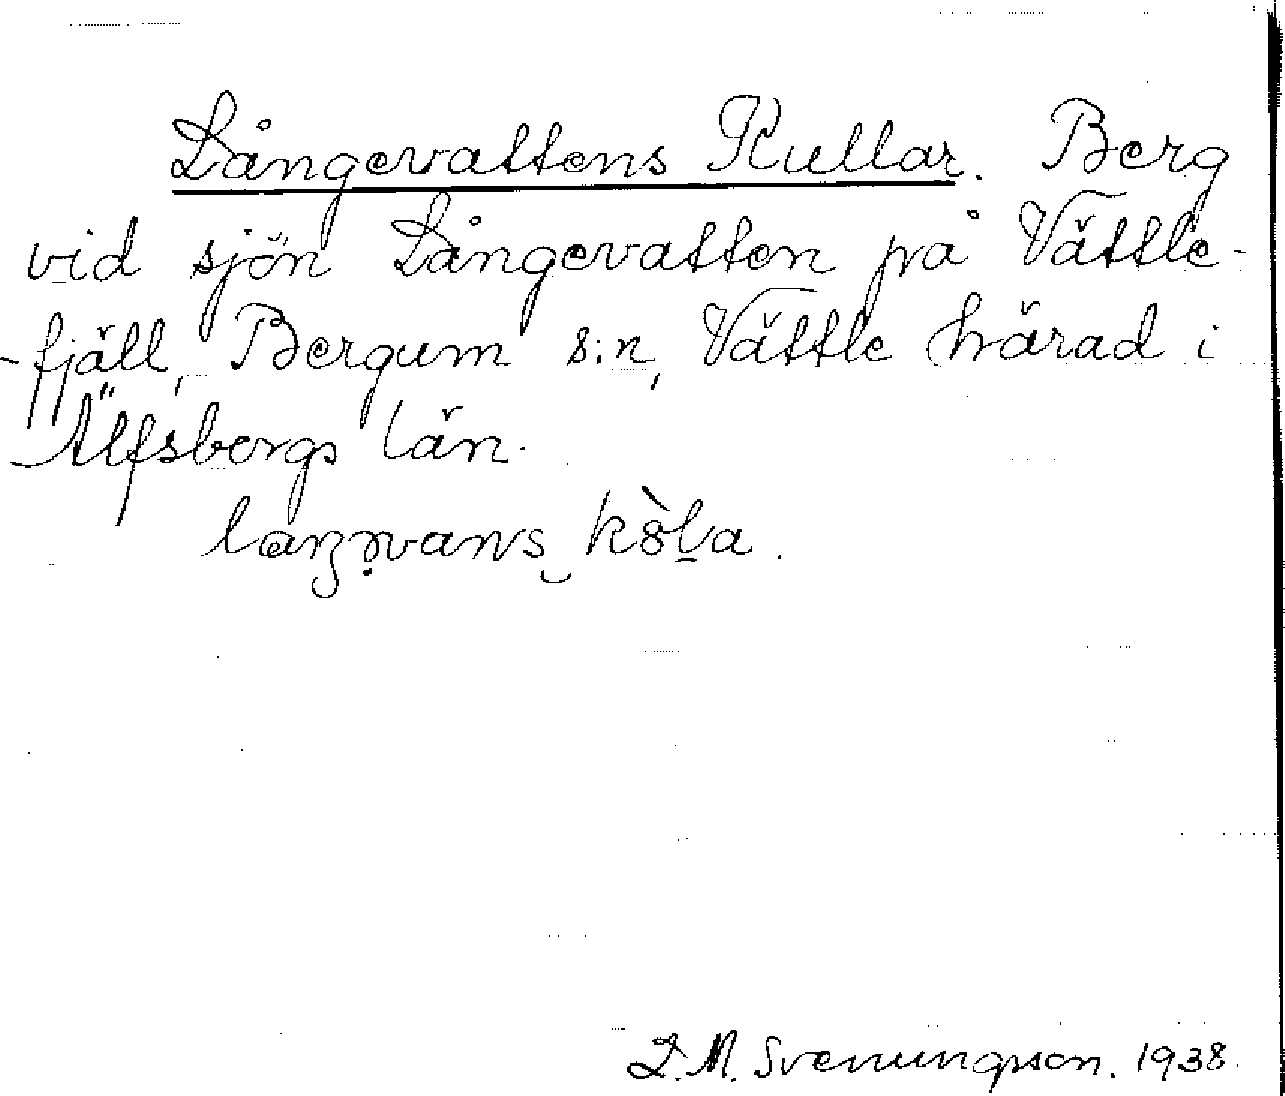 Långevattens Kullar. Berg
vid sjön Långevatten på Vättle-
-fjäll, Bergum s:n, Vättle härad i
Älfsborgs län.
L.M. Svenungson. 1938.